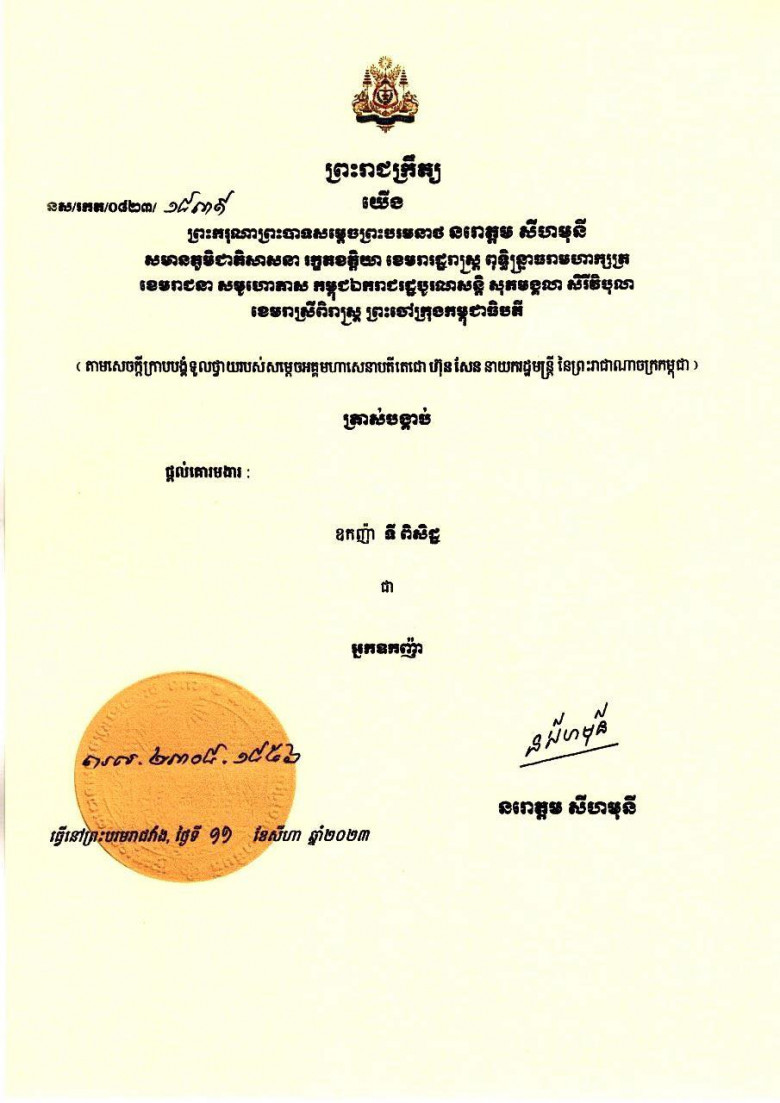 ព្រះរាជក្រឹត្យ
នស/រកត/០៨២៣/ ១៨៣៩
យើង
ព្រះករុណាព្រះបាទសម្តេចព្រះបរមនាថ នរោត្តម សីហមុនី
សមានភូមិជាតិសាសនា រក្ខតខត្តិយា ខេមរារដ្ឋរាស្ត្រ ពុទ្ធិន្ទ្រាធរាមហាក្សត្រ
ខេមរាជនា សមូហោភាស កម្ពុជឯករាជរដ្ឋបូរណសន្តិ សុភមង្គលា សិរីវិបុលា
ខេមរាស្រីពិរាស្ត្រ ព្រះចៅក្រុងកម្ពុជាធិបតី
( តាមសេចក្តីក្រាបបង្គំទូលថ្វាយរបស់សម្តេចអគ្គមហាសេនាបតីតេជោ ហ៊ុន សែន នាយករដ្ឋមន្ត្រី នៃព្រះរាជាណាចក្រកម្ពុជា )
ត្រាស់បង្គាប់
ផ្តល់គោរមងារ :
ឧកញ៉ា ទី ពិសិដ្ឋ
ជា
អ្នកឧកញ៉ា
ពរល. ២៣០៨. ១៨៥៦
នរោត្តម សីហមុនី
ធ្វើនៅព្រះបរមរាជវាំង, ថ្ងៃទី ១១ ខែសីហា ឆ្នាំ២០២៣